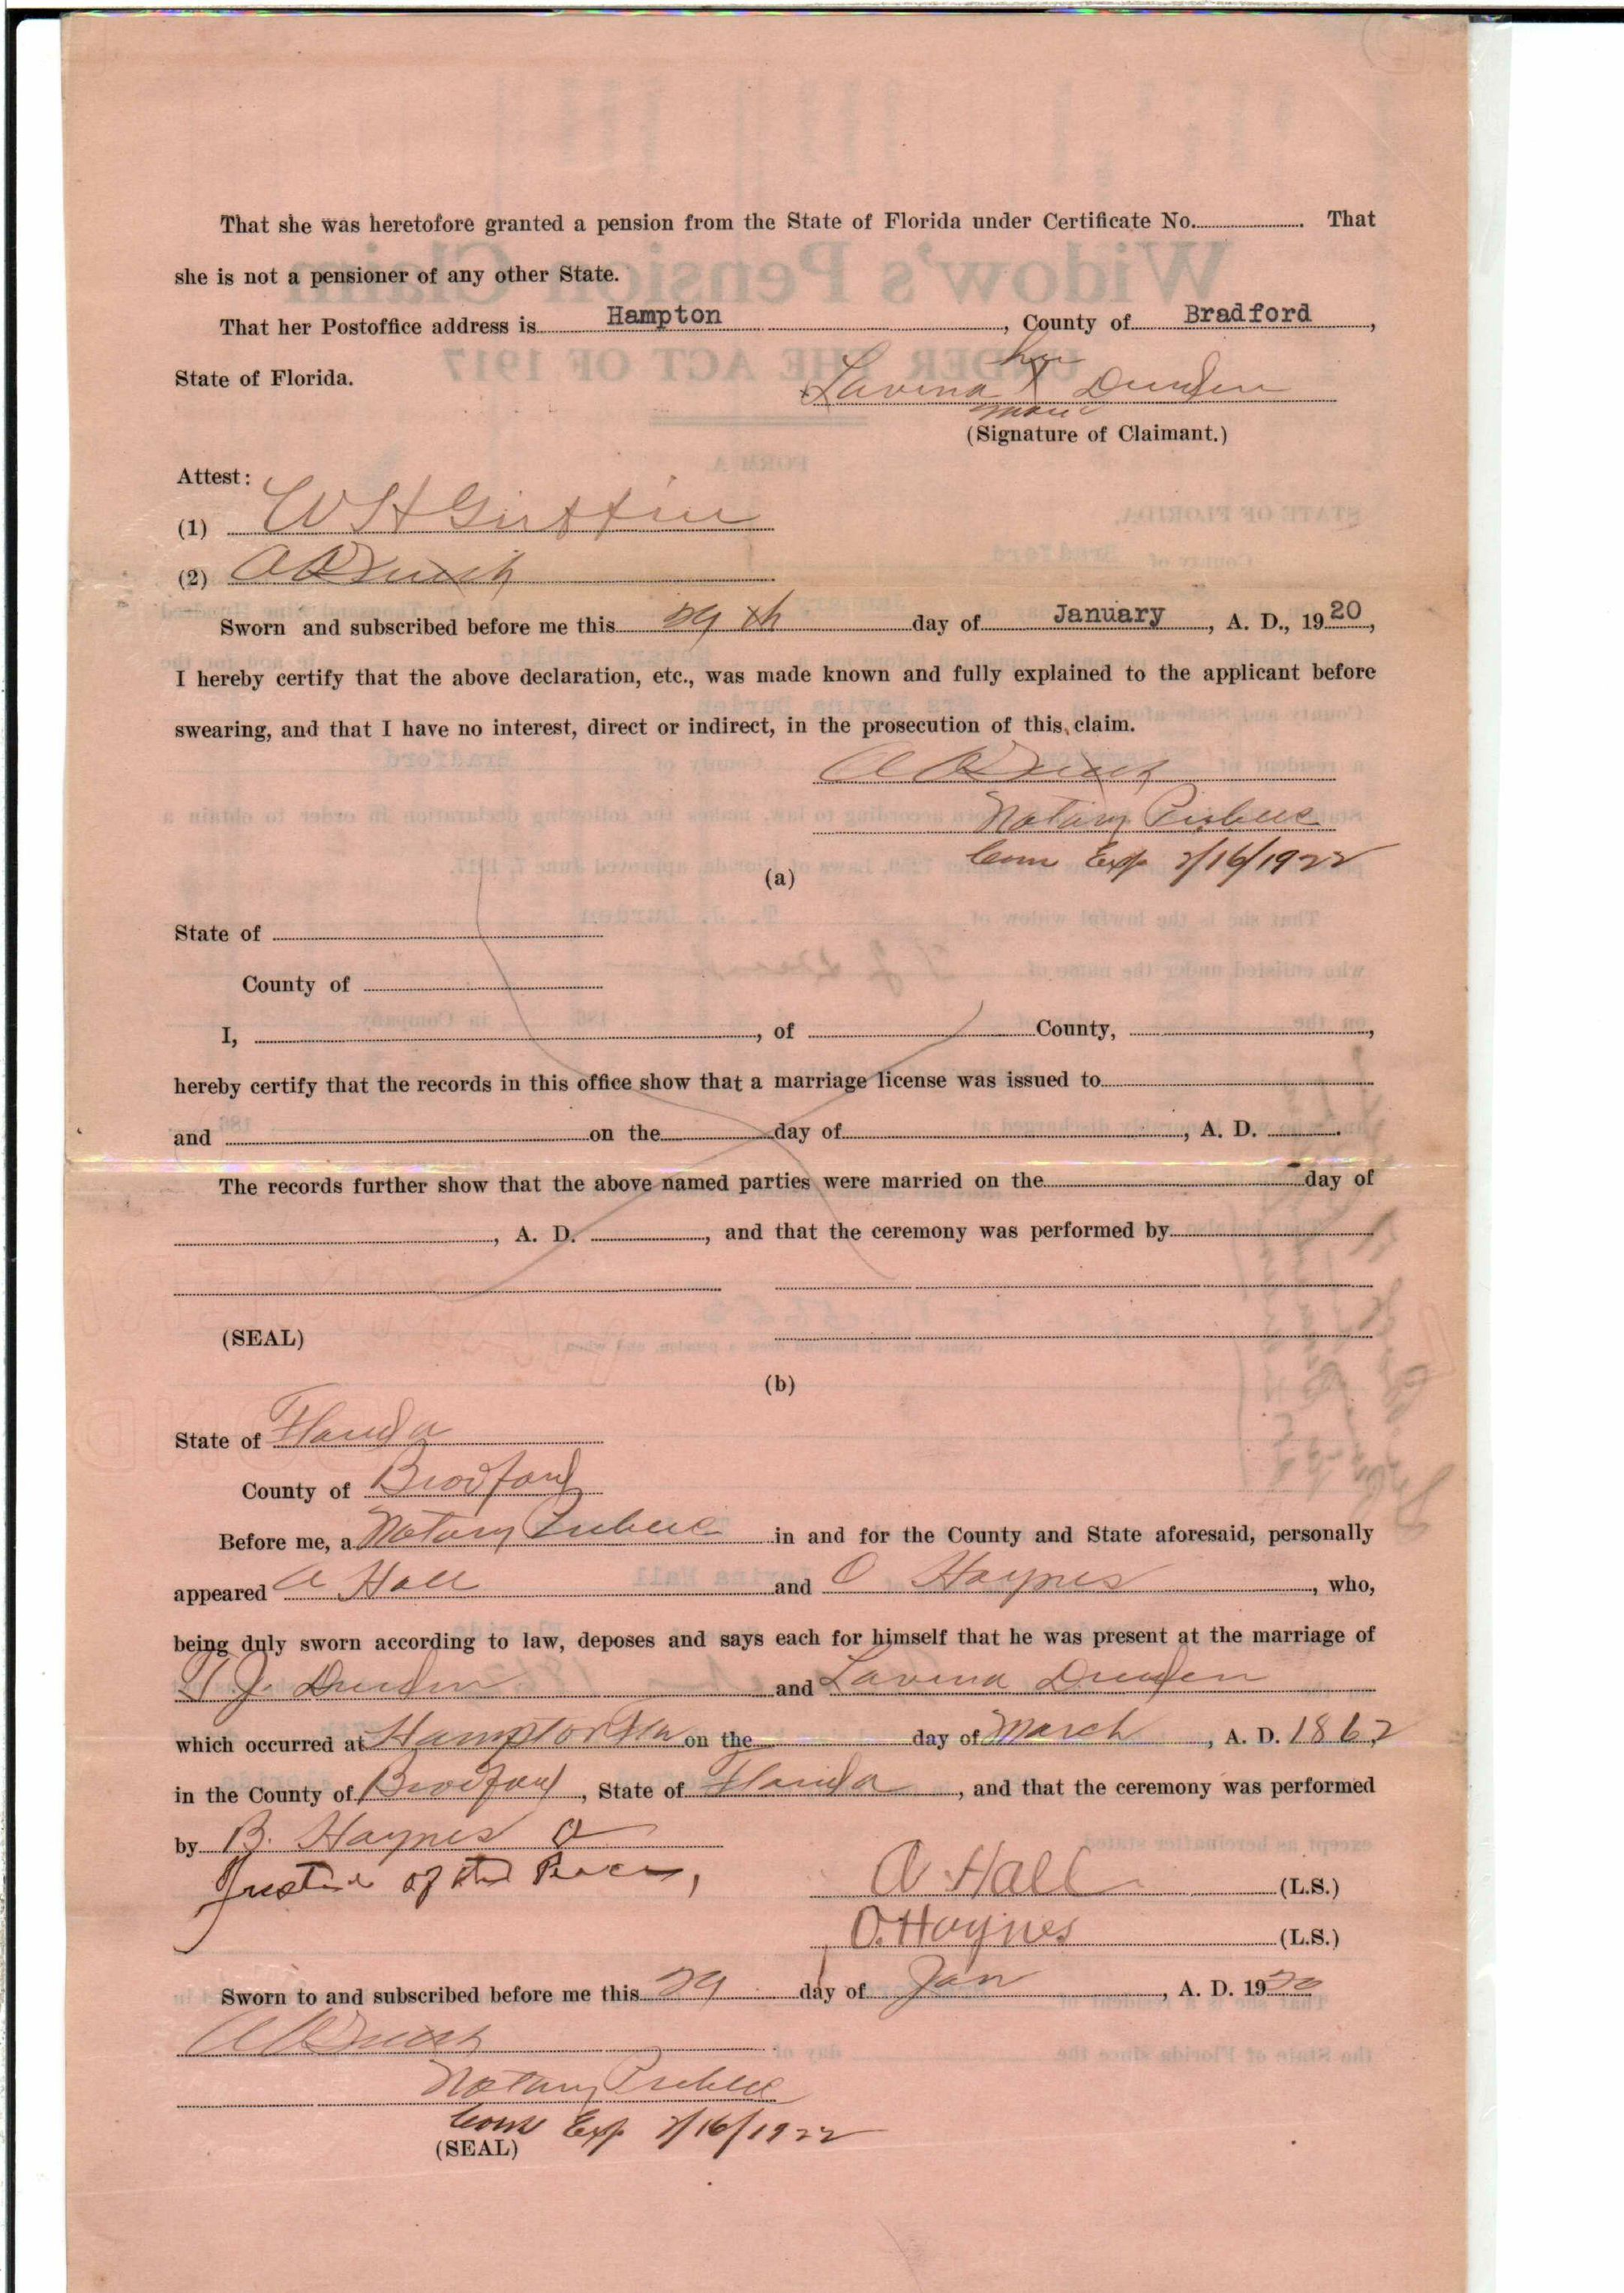 That she was heretofore granted a pension from the State of Florida under Certificate No. That
she is not a pensioner of any other State.
That her Postoffice address is Hampton, County of Bradford,
State of Florida.
her
Lavina X Durden
mark
(Signature of Claimant.)
Attest:
(1) W H Griffin
(2)
Sworn and subscribed before me this 29th day of January, A. D., 1920,
I hereby certify that the above declaration, etc., was made known and fully explained to the applicant before
swearing, and that I have no interest, direct or indirect, in the prosecution of this claim.
Notary Public
Com Exp 7/16/1922
(a)
State of
County of
I, , of County, ,
hereby certify that the records in this office show that a marriage license was issued to
and on the day of , A. D. .
The records further show that the above named parties were married on the day of
, A. D. , and that the ceremony was performed by
(SEAL)
(b)
State of Florida
County of Bradford
Before me, a Notary Public in and for the County and State aforesaid, personally
appeared A Hall and O Haynes, who,
being duly sworn according to law, deposes and says each for himself that he was present at the marriage of
J. Durden and Lavina Durden
which occurred at Hampton Fla on the day of March, A. D. 1867
in the County of Bradford, State of Florida, and that the ceremony was performed
by B. Haynes a
Justice of the Peace,
A Hall (L.S.)
O. Haynes (L.S.)
Sworn to and subscribed before me this 29 day of Jan, A. D. 1920
Notary Public
Com Exp 7/16/1922
(SEAL)